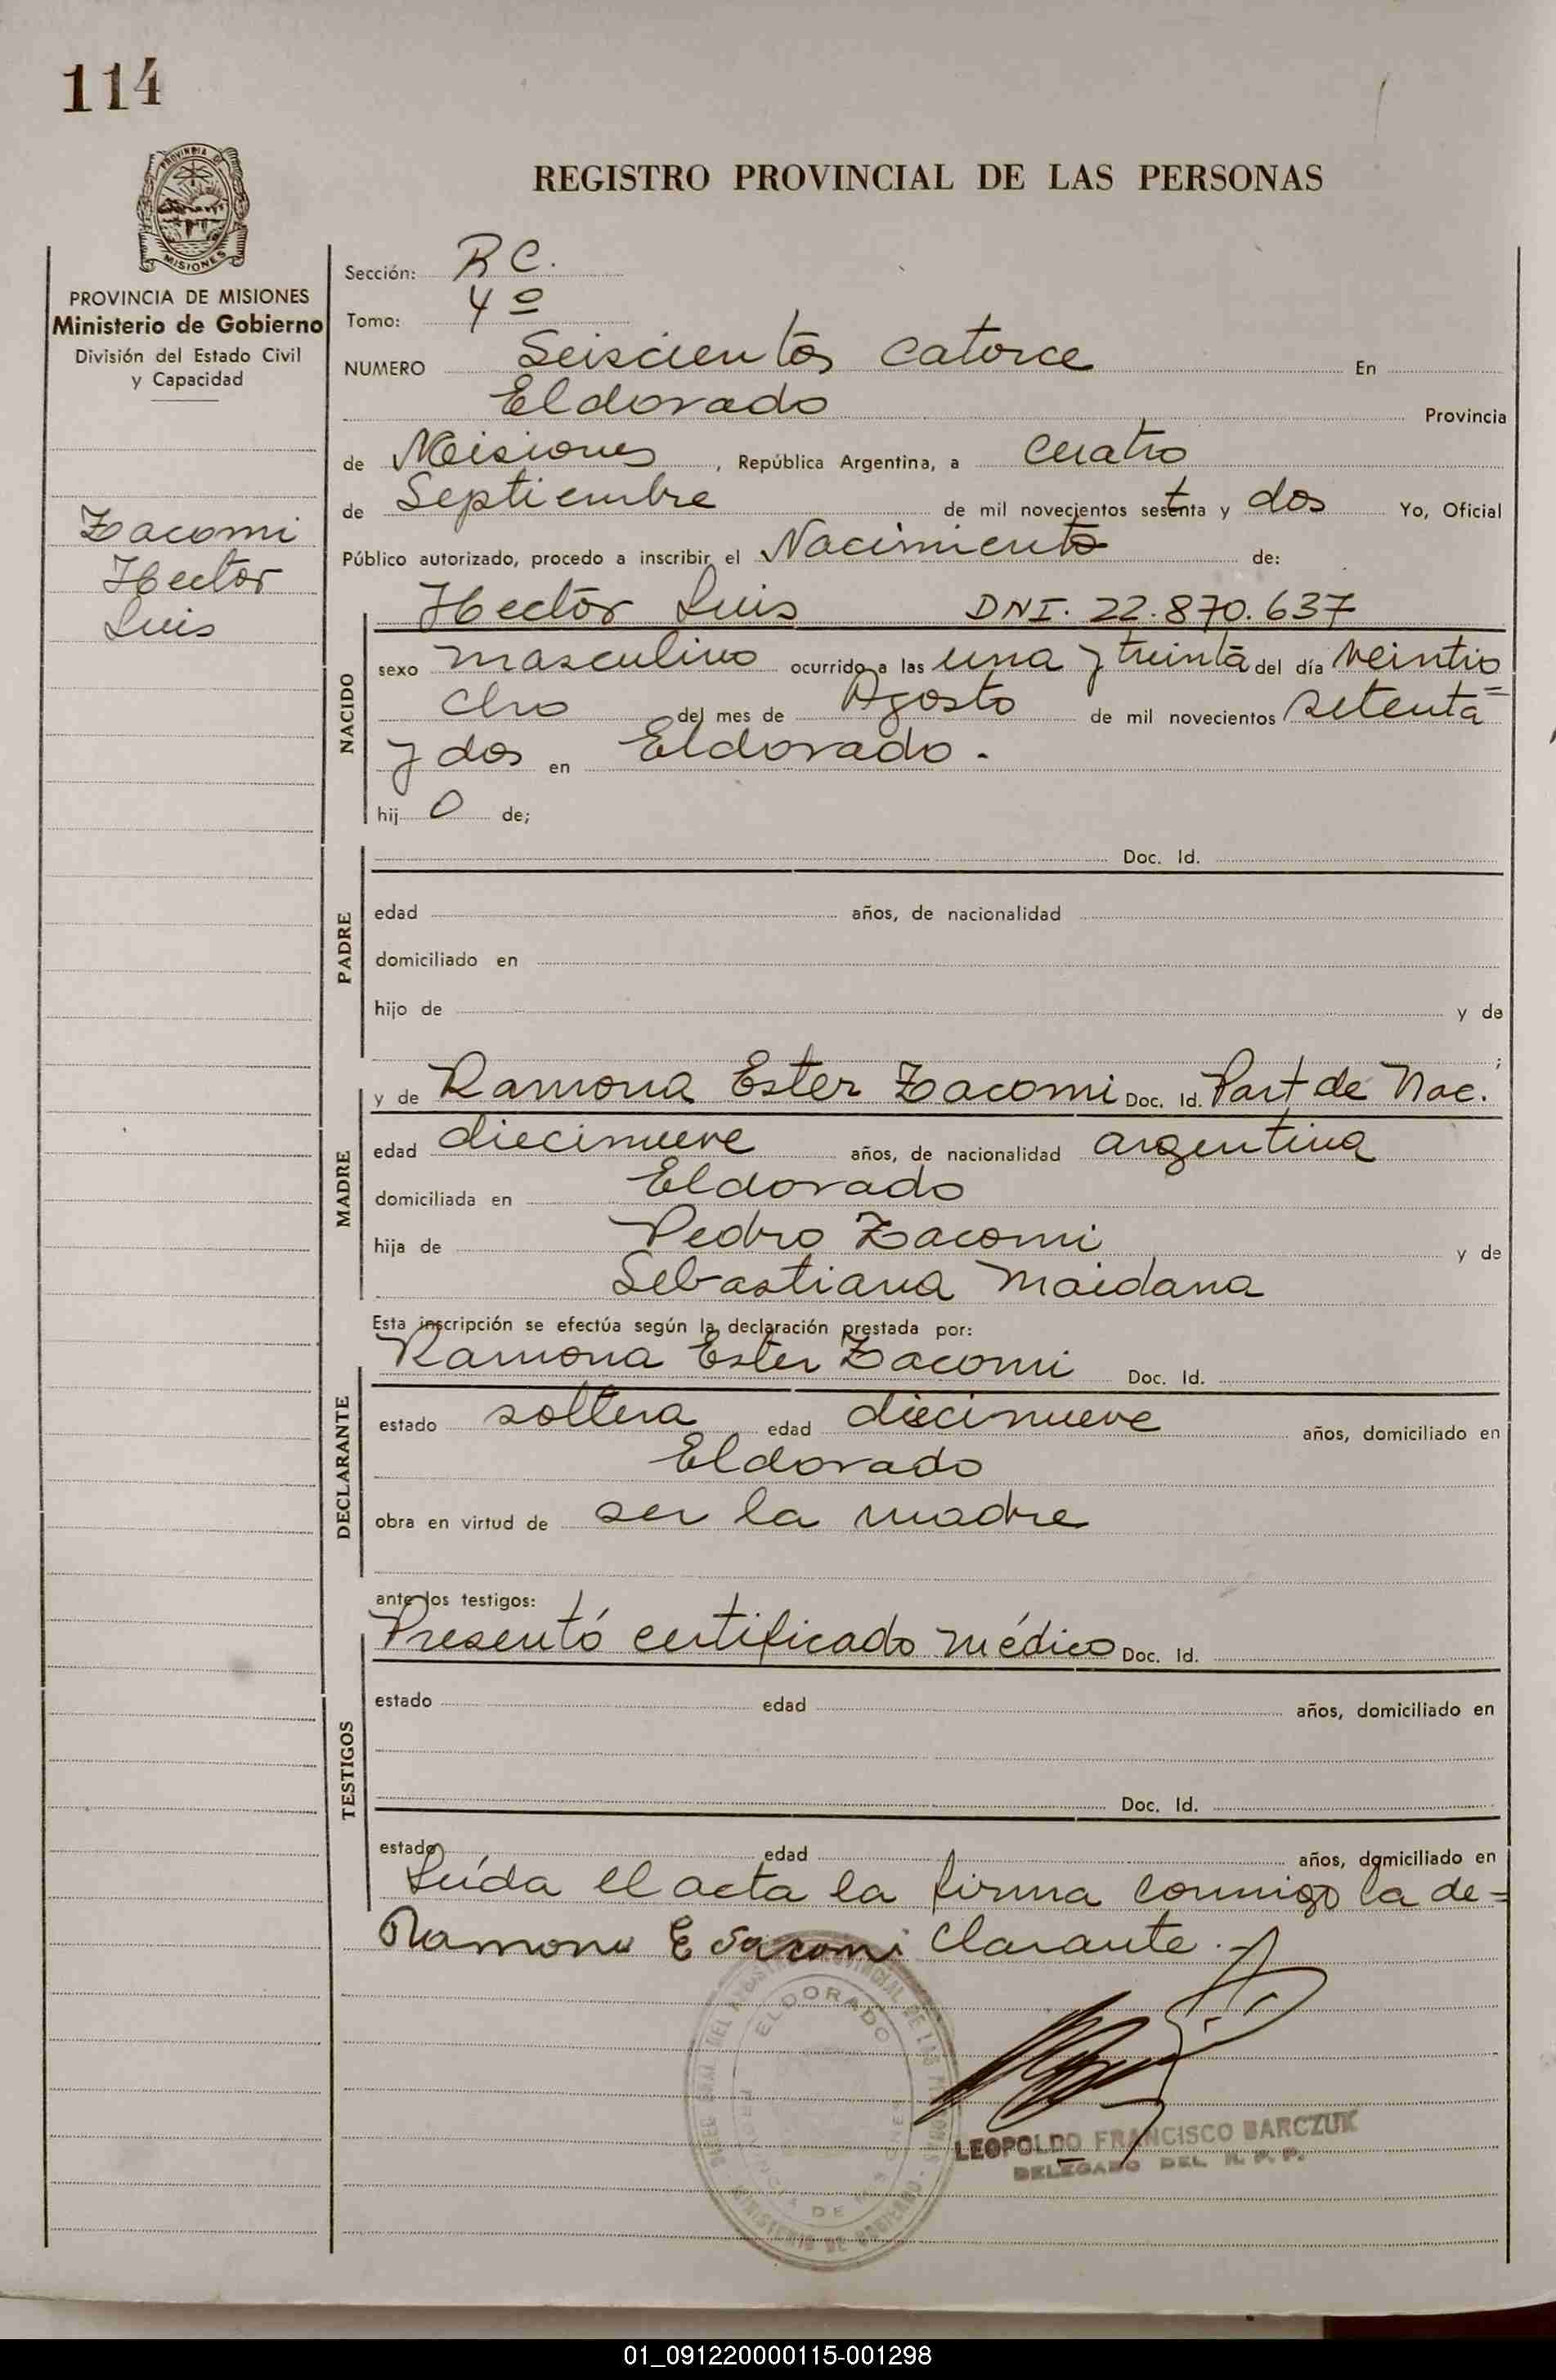 114
REGISTRO PROVINCIAL DE LAS PERSONAS
PROVINCIA DE MISIONES
PROVINCIA DE MISIONES
Ministerio de Gobierno
División del Estado Civil
y Capacidad
Zacomi
Hector
Luis
Sección: R C.
Tomo: 4º
NUMERO Seiscientos catorce En
Eldorado Provincia
de Misiones, República Argentina, a cuatro
de Septiembre de mil novecientos setenta y dos Yo, Oficial
Público autorizado, procedo a inscribir el Nacimiento de:
NACIDO
Hector Luis DNI. 22.870.637
sexo masculino ocurrido a las una y treinta del día veintio
cho del mes de Agosto de mil novecientos setenta
y dos en Eldorado.
hij o de;
PADRE
Doc. Id.
edad años, de nacionalidad
domiciliado en
hijo de y de
;
MADRE
y de Ramona Ester Zacomi Doc. Id. Part de Nac.
edad diecinueve años, de nacionalidad argentina
domiciliada en Eldorado
hija de Pedro Zacomi y de
Sebastiana Maidana
Esta inscripción se efectúa según la declaración prestada por:
DECLARANTE
Ramona Ester Zacomi Doc. Id.
estado soltera edad diecinueve años, domiciliado en
Eldorado
obra en virtud de ser la madre
ante los testigos:
TESTIGOS
Presentó certificado médico Doc. Id.
estado edad años, domiciliado en
Doc. Id.
estado edad años, domiciliado en
Leída el acta la firma conmigo la de=
Ramona E Sacomi clarante.
ELDORADO
PROVINCIA DE MISIONES
MINISTERIO DE GOBIERNO
LEOPOLDO FRANCISCO BARCZUK
DELEGADO DEL R. P. P.
01_091220000115-001298